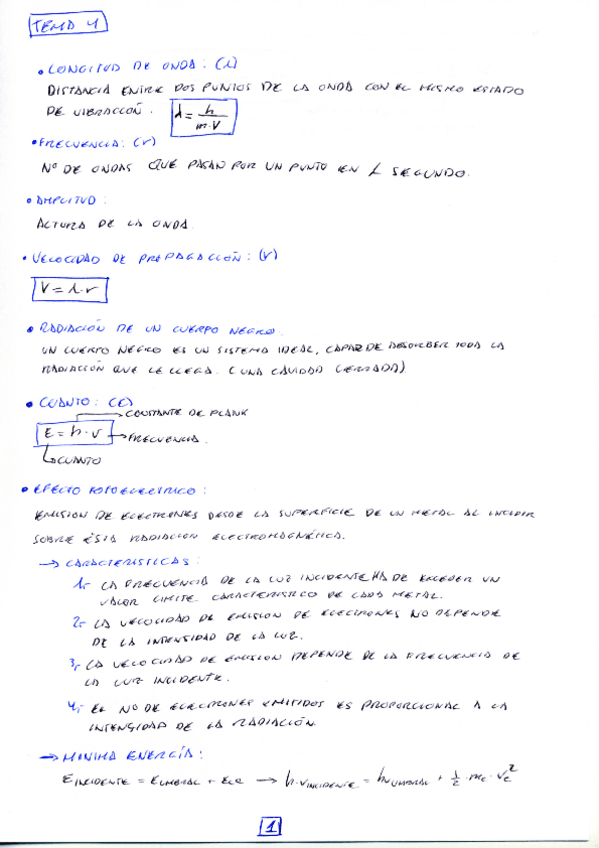 TEMA 1
• LONGITUD DE ONDA: (λ)
DISTANCIA ENTRE DOS PUNTOS DE LA ONDA CON EL MISMO ESTADO
DE VIBRACCIÓN. λ = h / m·V
• FRECUENCIA: (ν)
Nº DE ONDAS QUE PASAN POR UN PUNTO EN 1 SEGUNDO.
• AMPLITUD:
ALTURA DE LA ONDA.
• VELOCIDAD DE PROPAGACCIÓN: (V)
V = λ·ν
• RADIACIÓN DE UN CUERPO NEGRO.
UN CUERPO NEGRO ES UN SISTEMA IDEAL, CAPAZ DE ABSORBER TODA LA
RADIACIÓN QUE LE LLEGA. (UNA CAVIDAD CERRADA)
• CUANTO: (E)
→ CONSTANTE DE PLANK
E = h·ν → FRECUENCIA.
↳ CUANTO
• EFECTO FOTOELECTRICO:
EMISION DE ELECTRONES DESDE LA SUPERFICIE DE UN METAL AL INCIDIR
SOBRE ÉSTA RADIACION ELECTROMAGNÉTICA.
→ CARACTERISTICAS:
1.- LA FRECUENCIA DE LA LUZ INCIDENTE HA DE EXCEDER UN
VALOR LIMITE CARACTERISTICO DE CADA METAL.
2.- LA VELOCIDAD DE EMISION DE ELECTRONES NO DEPENDE
DE LA INTENSIDAD DE LA LUZ.
3.- LA VELOCIDAD DE EMISION DEPENDE DE LA FRECUENCIA DE
LA LUZ INCIDENTE.
4.- EL Nº DE ELECTRONES EMITIDOS ES PROPORCIONAL A LA
INTENSIDAD DE LA RADIACIÓN.
→ MINIMA ENERGÍA:
E INCIDENTE = E UMBRAL + Ece → h·ν INCIDENTE = hν UMBRAL + 1/2 · me · Ve²
1